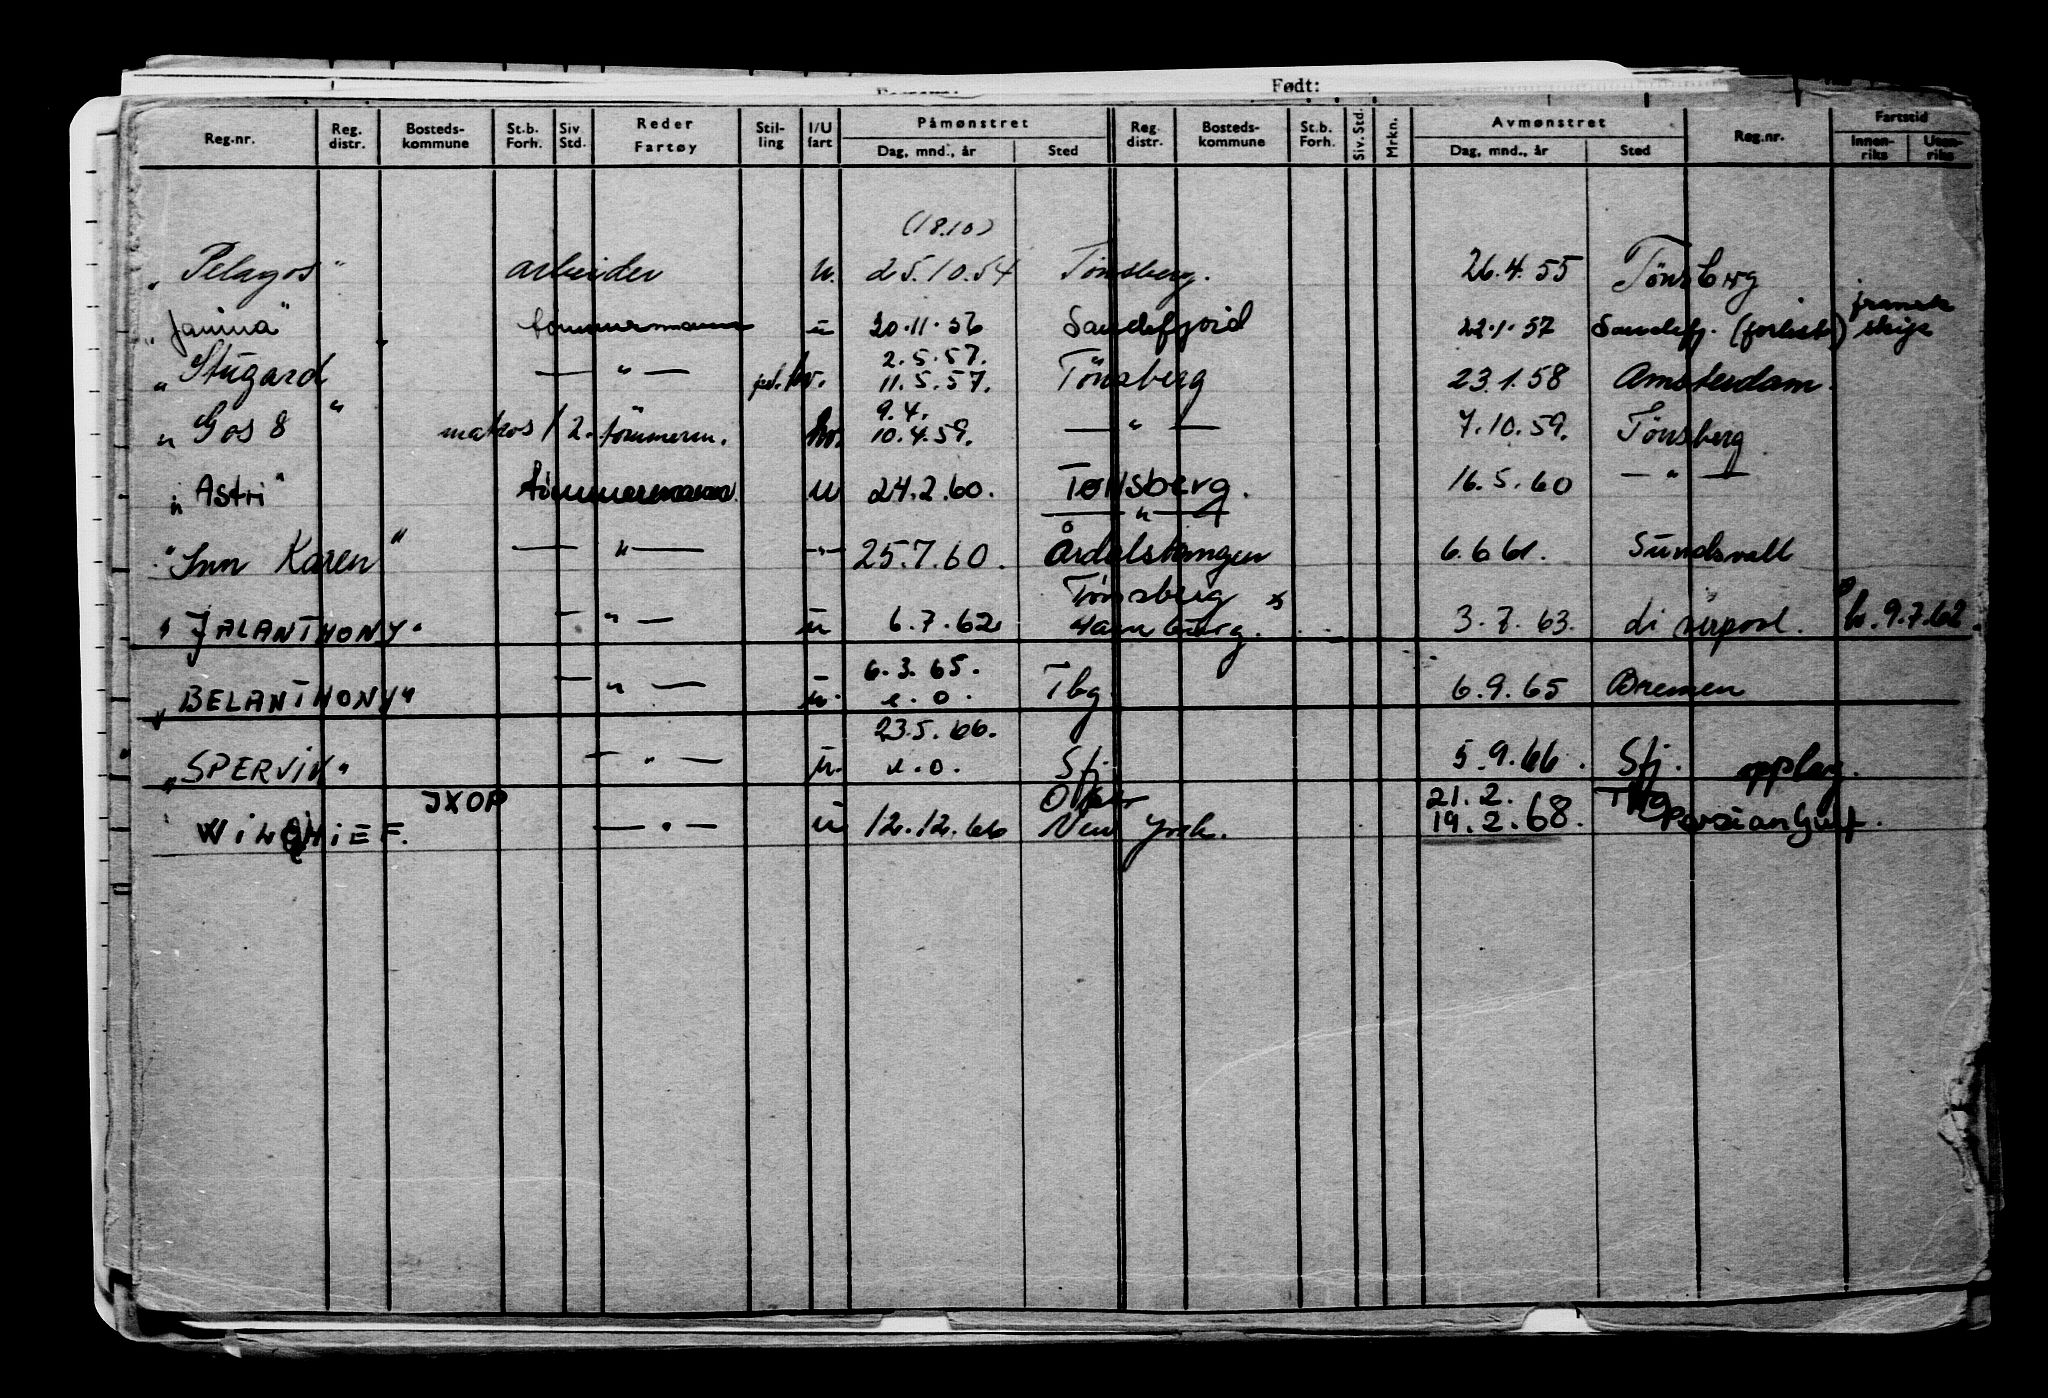 Født:
Reg.nr. Reg. distr. Bosteds- kommune St.b. Forh. Siv. Std. Reder Fartøy Stil- ling I/U fart Påmønstret Dag, mnd., år Sted Reg. distr. Bosteds- kommune St.b. Forh. Siv. Std. Mrkn. Avmønstret Dag, mnd., år Sted Reg.nr. Fartstid Innen- riks Uten- riks
(18.10)
"Pelagos" arbeider u. 25.10.54 Tønsberg. 26.4.55 Tønsberg
"Janina" tømmermann u 20.11.56 Sandefjord 22.1.57 Sandefj. (forlist) fransk skip
2.5.57.
"Stugard" — " — hv. 11.5.57. Tønsberg 23.1.58 Amsterdam.
9.4.
"Gos 8" matros / 2. tømmerm. hv. 10.4.59. — " — 7.10.59. Tønsberg
"Astri" tømmermann u 24.2.60. Tønsberg. 16.5.60 — " —
— " —
"Inn Karen" — " — — " — 25.7.60. Årdalstangen 6.6.61. Sundsvall
Tønsberg
"JALANTHONY" — " — u 6.7.62 Hamburg. 3.7.63. Liverpool. 9.7.62.
6.3.65.
"BELANTHONY" — " — u. e.o. Tbg 6.9.65 Bremen
23.5.66.
"SPERVIK" — " — u. e.o. Sfj. 5.9.66. Sfj. opplag.
JXOP 21.2. Tbg
WILCHIEF. — " — u 12.12.66 New York. 19.2.68. Persian Gulf.